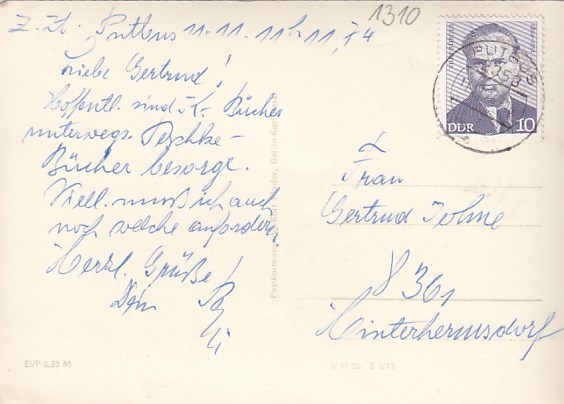 1310
z. Zt. Putbus 11.11.11h11,74
Liebe Gertrud!
Hoffentl. sind K. Bücher
unterwegs. Peschke-
Bücher besorge.
Viell. muß ich auch
noch welche anfordern.
Herzl. Grüße!
Dein
PUTBUS
DDR 10
Frau
Gertrud Johne
8361
Hinterhermsdorf
EVP 0,25 M
V 11 50